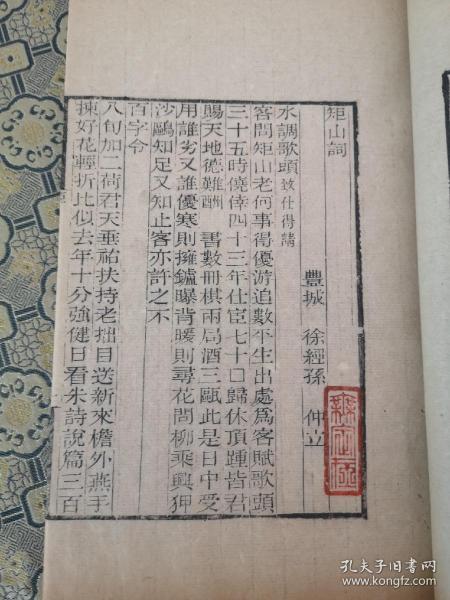 矩山詞
豐城 徐經孫 仲立
水調歌頭 致仕得請
客問矩山老何事得優游追數平生出處爲客賦歌頭
三十五時僥倖四十三年仕宦七十囗歸休頂踵皆君
賜天地德難酬 書數冊棋兩局酒三甌此是日中受
用誰劣又誰優寒則擁鑪曝背暖則尋花問柳乘興狎
沙鷗知足又知止客亦許之不
百字令
八旬加二荷君天垂祐扶持老拙目送新來檐外燕手
揀好花輕折比似去年十分強健日看朱詩說篇三百
孔夫子旧书网
www.kongfz.com